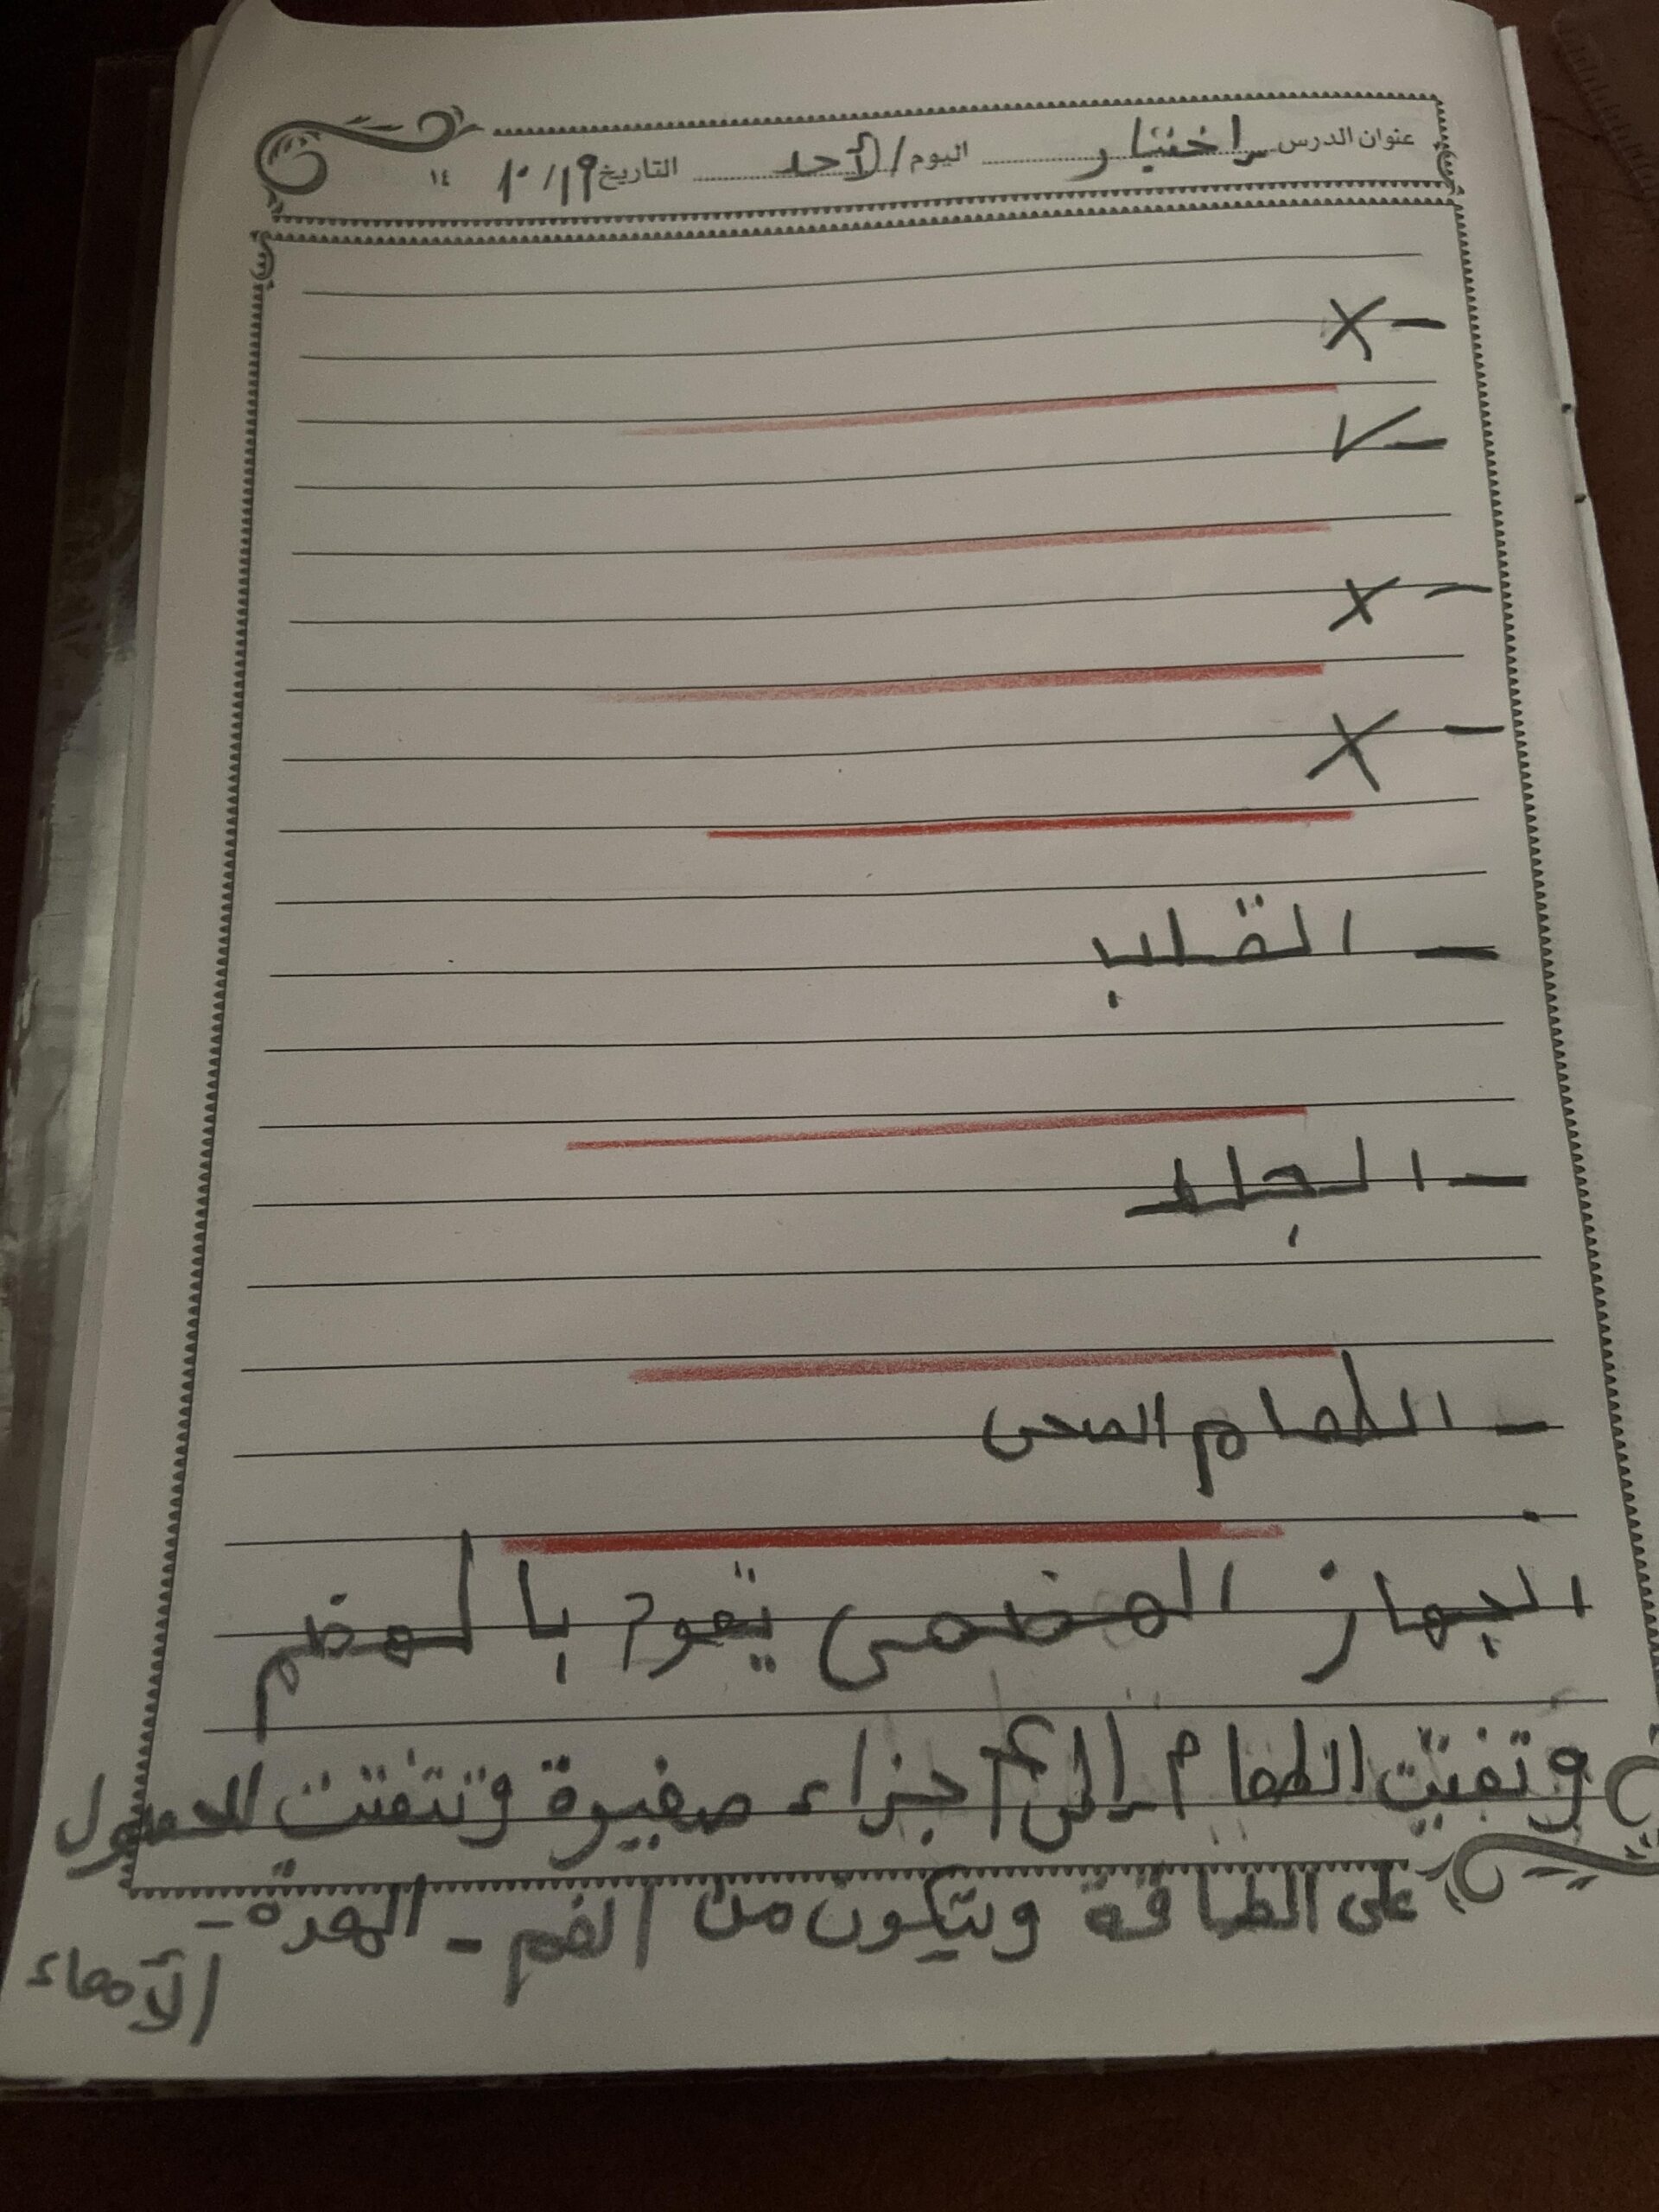 عنوان الدرس إختبار اليوم/الأحد التاريخ ١٠/١٩ ١٤
- X
- ✓
- X
- X
- القلب
- الجلد
- الطعام الصحى
الجهاز الهضمى يقوم بالهضم
وتفتيت الطعام إلى أجزاء صغيرة وتتفتت للحصول
على الطاقة ويتكون من الفم - المعدة -
الأمعاء